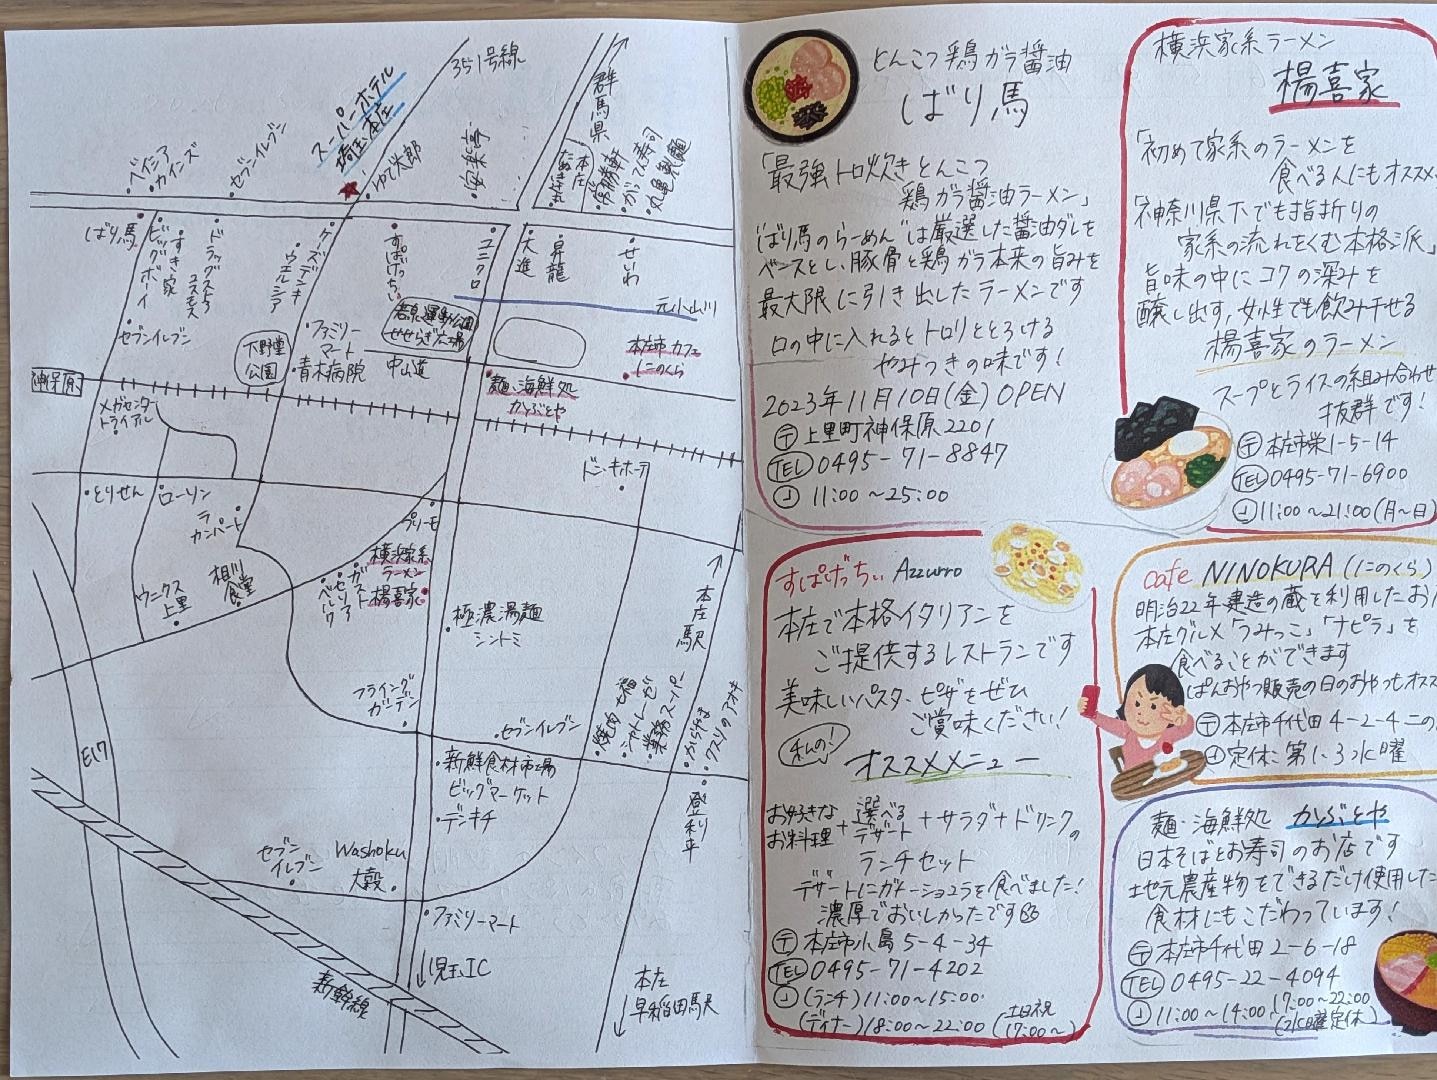 351号線
スーパーホテル
埼玉本庄
ゆで太郎
安楽亭
群馬県
本庄
たぬき
がってん寿司
丸亀製麺
ベイシア
カインズ
セブンイレブン
ばり馬
ビッグボーイ
すき家
ドラッグストア
コスモス
ケーズデンキ
ウエルシア
すぱげっちぃ
ユニクロ
大進
昇龍
せいわ
元小山川
セブンイレブン
下野堂
公園
ファミリー
マート
青木病院
若泉運動公園
せせらぎ広場
中山道
麺・海鮮処
かぶとや
本庄市カフェ
にのくら
神保原
メガセンター
トライアル
ドン・キホーテ
とりせん
ローソン
ラ
カンパーナ
プリモ
横浜家系
ラーメン
楊喜家
ガスト
セリア
ベルク
相川
食堂
ウニクス
上里
極濃湯麺
シントミ
本庄駅
フライング
ガーデン
セブンイレブン
シャトレーゼ
業務スーパー
からやま
クスリのアオキ
新鮮食材市場
ビッグマーケット
デンキチ
登利平
E17
セブン
イレブン
Washoku
大穀
ファミリーマート
児玉IC
新幹線
本庄
早稲田駅
とんこつ鶏ガラ醤油
ばり馬
「最強トロ炊きとんこつ
鶏ガラ醤油ラーメン」
"ばり馬のらーめん"は厳選した醤油ダレを
ベースとし、豚骨と鶏ガラ本来の旨みを
最大限に引き出したラーメンです
口の中に入れるとトロリととろける
やみつきの味です!
2023年11月10日(金)OPEN
〒上里町神保原2201
TEL 0495-71-8847
11:00~25:00
横浜家系ラーメン
楊喜家
「初めて家系のラーメンを
食べる人にもオススメ
「神奈川県下でも指折りの
家系の流れをくむ本格派」
旨味の中にコクの深みを
醸し出す,女性でも飲み干せる
楊喜家のラーメン
スープとライスの組み合わせ
抜群です!
〒本庄市栄1-5-14
TEL 0495-71-6900
11:00~21:00(月~日)
すぱげっちぃ Azzurro
本庄で本格イタリアンを
ご提供するレストランです
美味しいパスタ・ピザをぜひ
ご賞味ください!
私の!
オススメメニュー
お好きな
お料理+選べる
デザート+サラダ+ドリンクの
ランチセット
デザートにガトーショコラを食べました!
濃厚でおいしかったです
〒本庄市小島5-4-34
TEL 0495-71-4202
(ランチ)11:00~15:00
(ディナー)18:00~22:00(土日祝
17:00~)
cafe NINOKURA(にのくら)
明治22年建造の蔵を利用したお
本庄グルメ「うみっこ」「ナピラ」を
食べることができます
ぱんおやつ販売の日のおやつもオス
〒本庄市千代田4-2-4 二の
定休:第1、3火曜
麺・海鮮処 かぶとや
日本そばとお寿司のお店です
地元農産物をできるだけ使用した
食材にもこだわっています!
〒本庄市千代田2-6-18
TEL 0495-22-4094
11:00~14:00、17:00~22:00
(水曜定休)